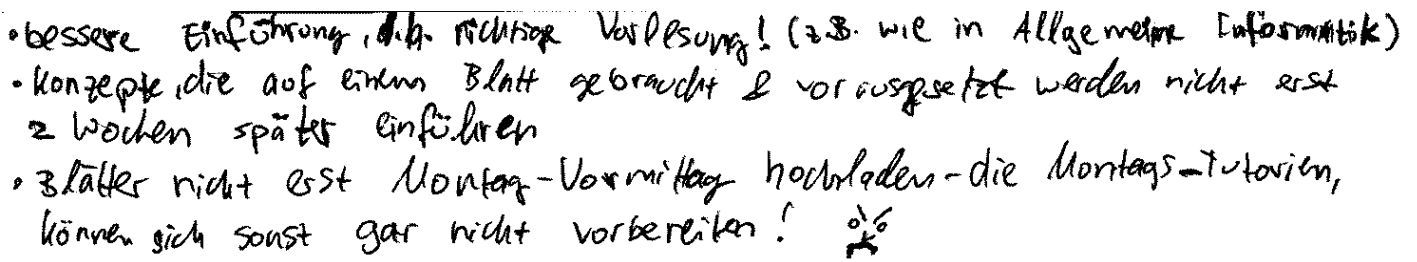 • bessere Einführung, d.h. richtige Vorlesung! (z.B. wie in Allgemeine Informatik)
• Konzepte, die auf einem Blatt gebraucht & vorausgesetzt werden nicht erst
2 Wochen später einführen
• Blätter nicht erst Montag-Vormittag hochladen - die Montags-Tutorien,
können sich sonst gar nicht vorbereiten!